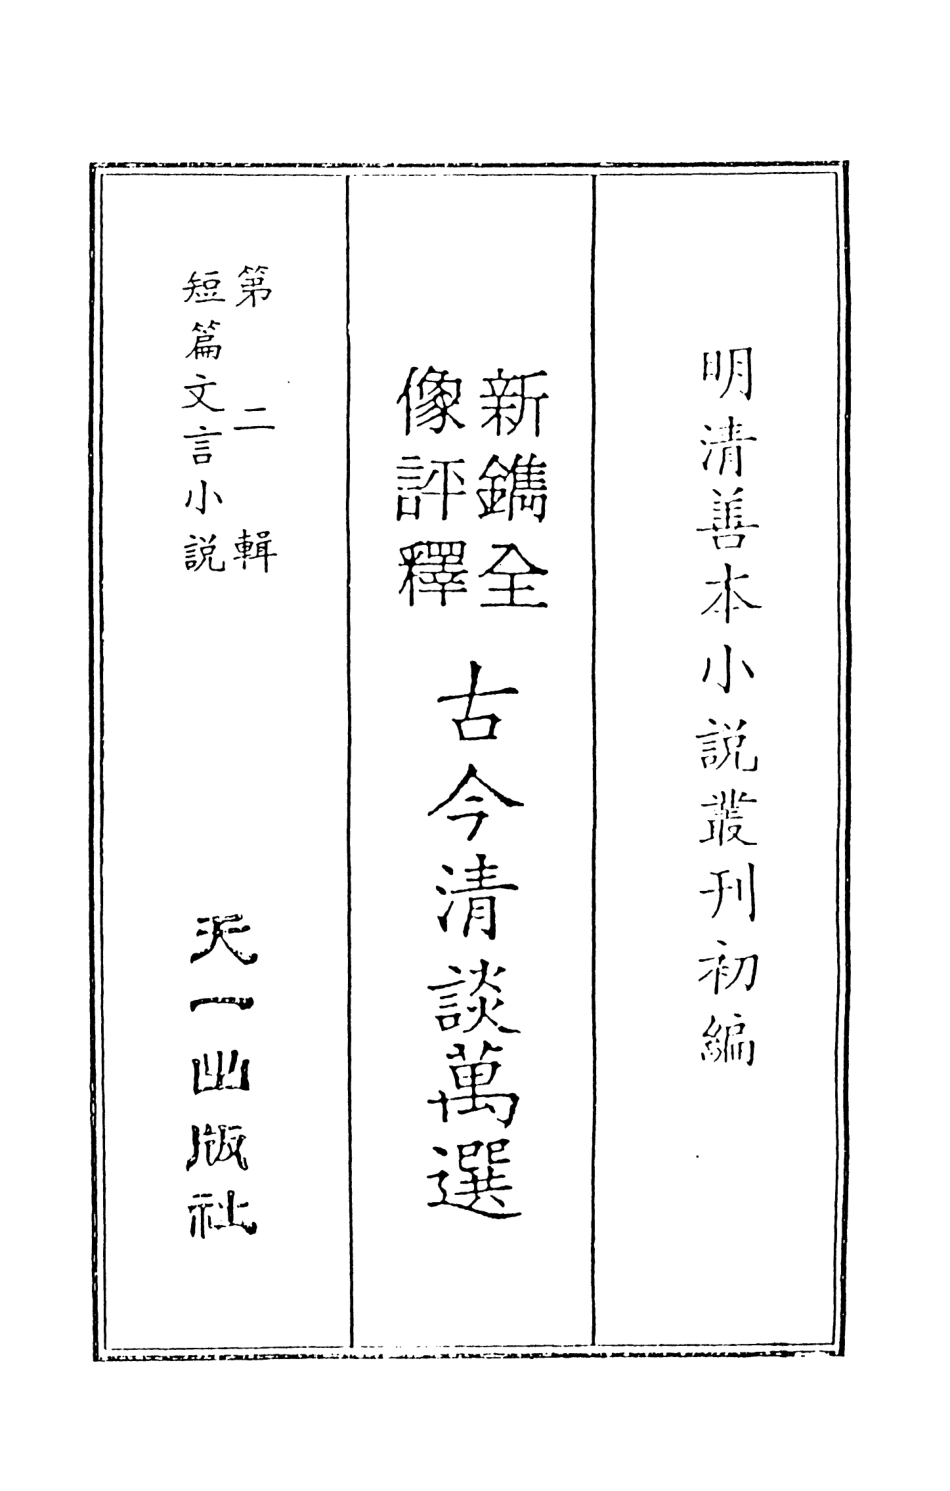 明清善本小説叢刊初編
新鐫全
像評釋
古今清談萬選
第二輯
短篇文言小説
天一出版社